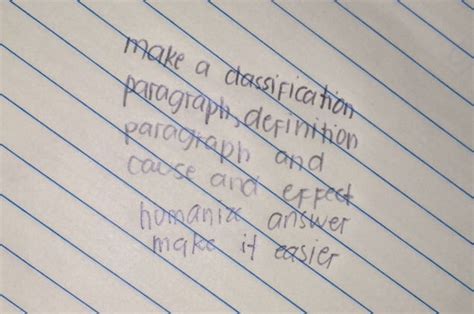 make a classification
paragraph, definition
paragraph and
cause and effect
humanize answer
make it easier